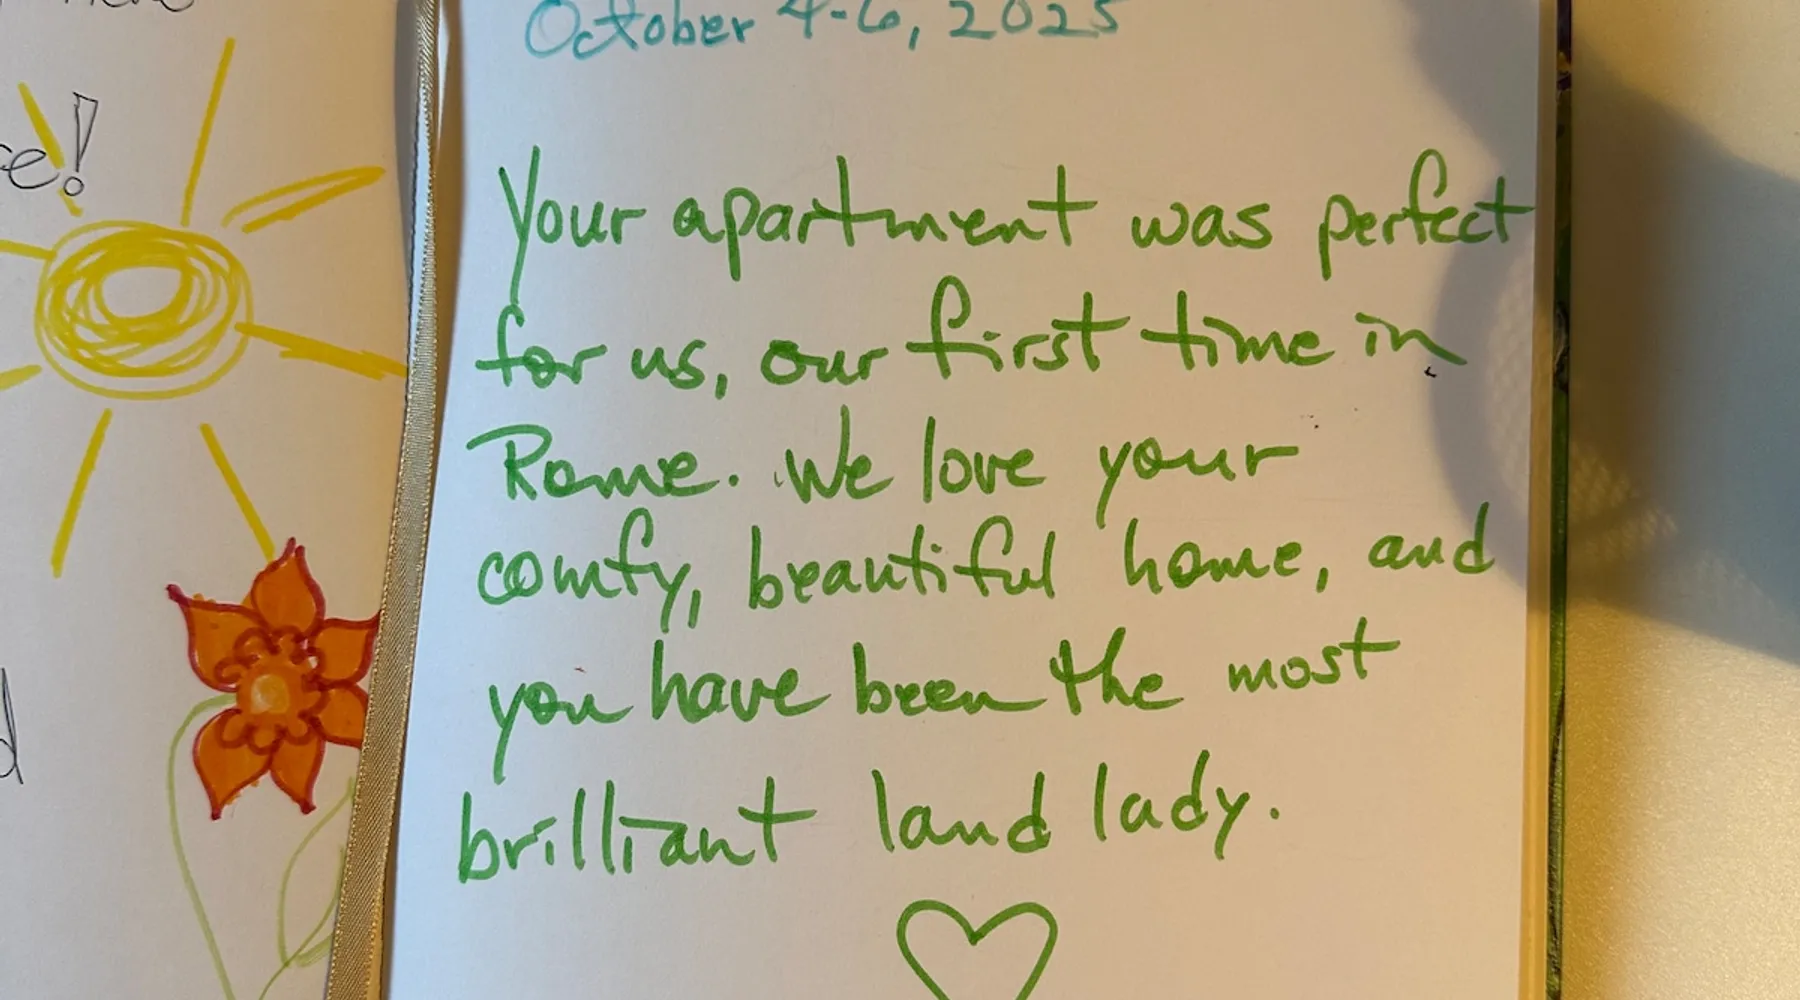 ce!
d
October 4-6, 2025
Your apartment was perfect
for us, our first time in
Rome. We love your
comfy, beautiful home, and
you have been the most
brilliant land lady.